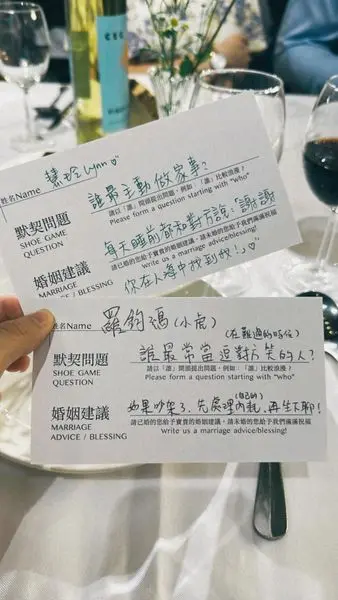 姓名Name 慧玲 Lynn ♡
默契問題 誰最主動做家事?
SHOE GAME
QUESTION
請以「誰」開頭提出問題,例如:「誰」比較浪漫?
Please form a question starting with "Who"
婚姻建議 每天睡前都和對方說:「謝謝
MARRIAGE
ADVICE / BLESSING
請已婚的您給予寶貴的婚姻建議,請未婚的您給予我們滿滿祝福
Write us a marriage advice/blessing!
你在人海中找到我!」♡
姓名Name 羅鈞鴻(小虎)
(在難過的時候)
默契問題 誰最常當逗對方笑的人?
SHOE GAME
QUESTION
請以「誰」開頭提出問題,例如:「誰」比較浪漫?
Please form a question starting with "Who"
(自己的)
婚姻建議 如果吵架了,先處理內耗,再坐下聊!
MARRIAGE
ADVICE / BLESSING
請已婚的您給予寶貴的婚姻建議,請未婚的您給予我們滿滿祝福
Write us a marriage advice/blessing!